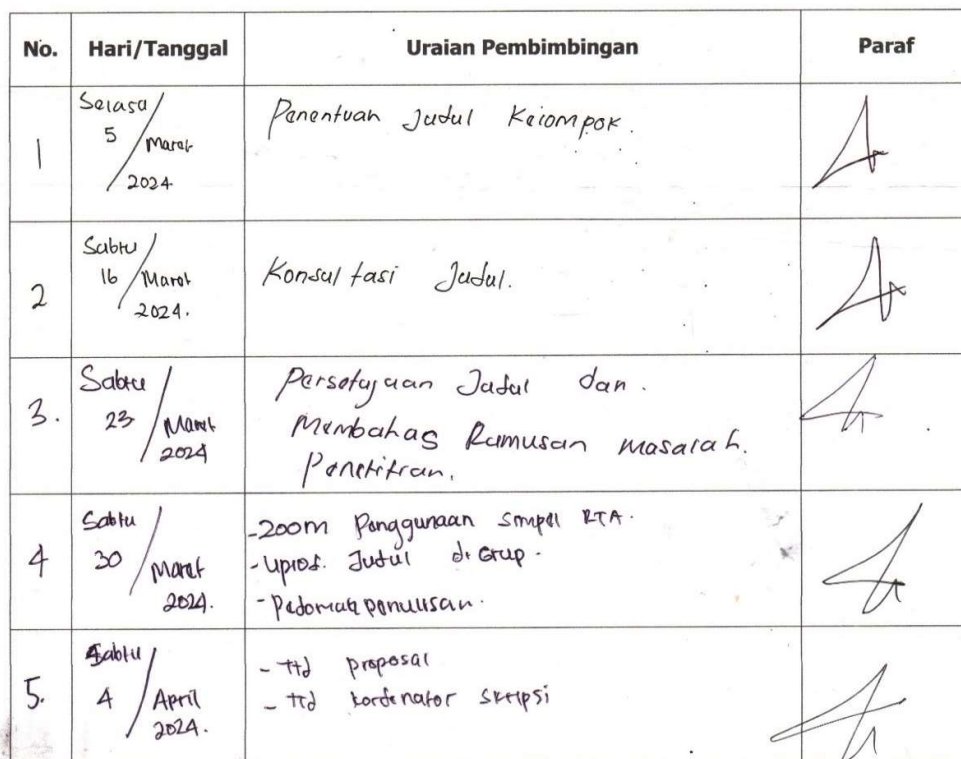 No. Hari/Tanggal Uraian Pembimbingan Paraf
1
Selasa/
5 / Maret
2024
Penentuan Judul Kelompok.
2
Sabtu/
16 / Maret
2024.
Konsultasi Judul.
3.
Sabtu /
23 / Maret
2024
Persetujuan Judul dan.
Membahas Rumusan masalah.
Penelitian.
4
Sabtu /
30 / Maret
2024.
- zoom Penggunaan Simpel RTA.
- Judul di Grup.
- Pedoman penulisan.
5.
Sabtu /
4 / April
2024.
- ttd proposal
- ttd kordenator skripsi